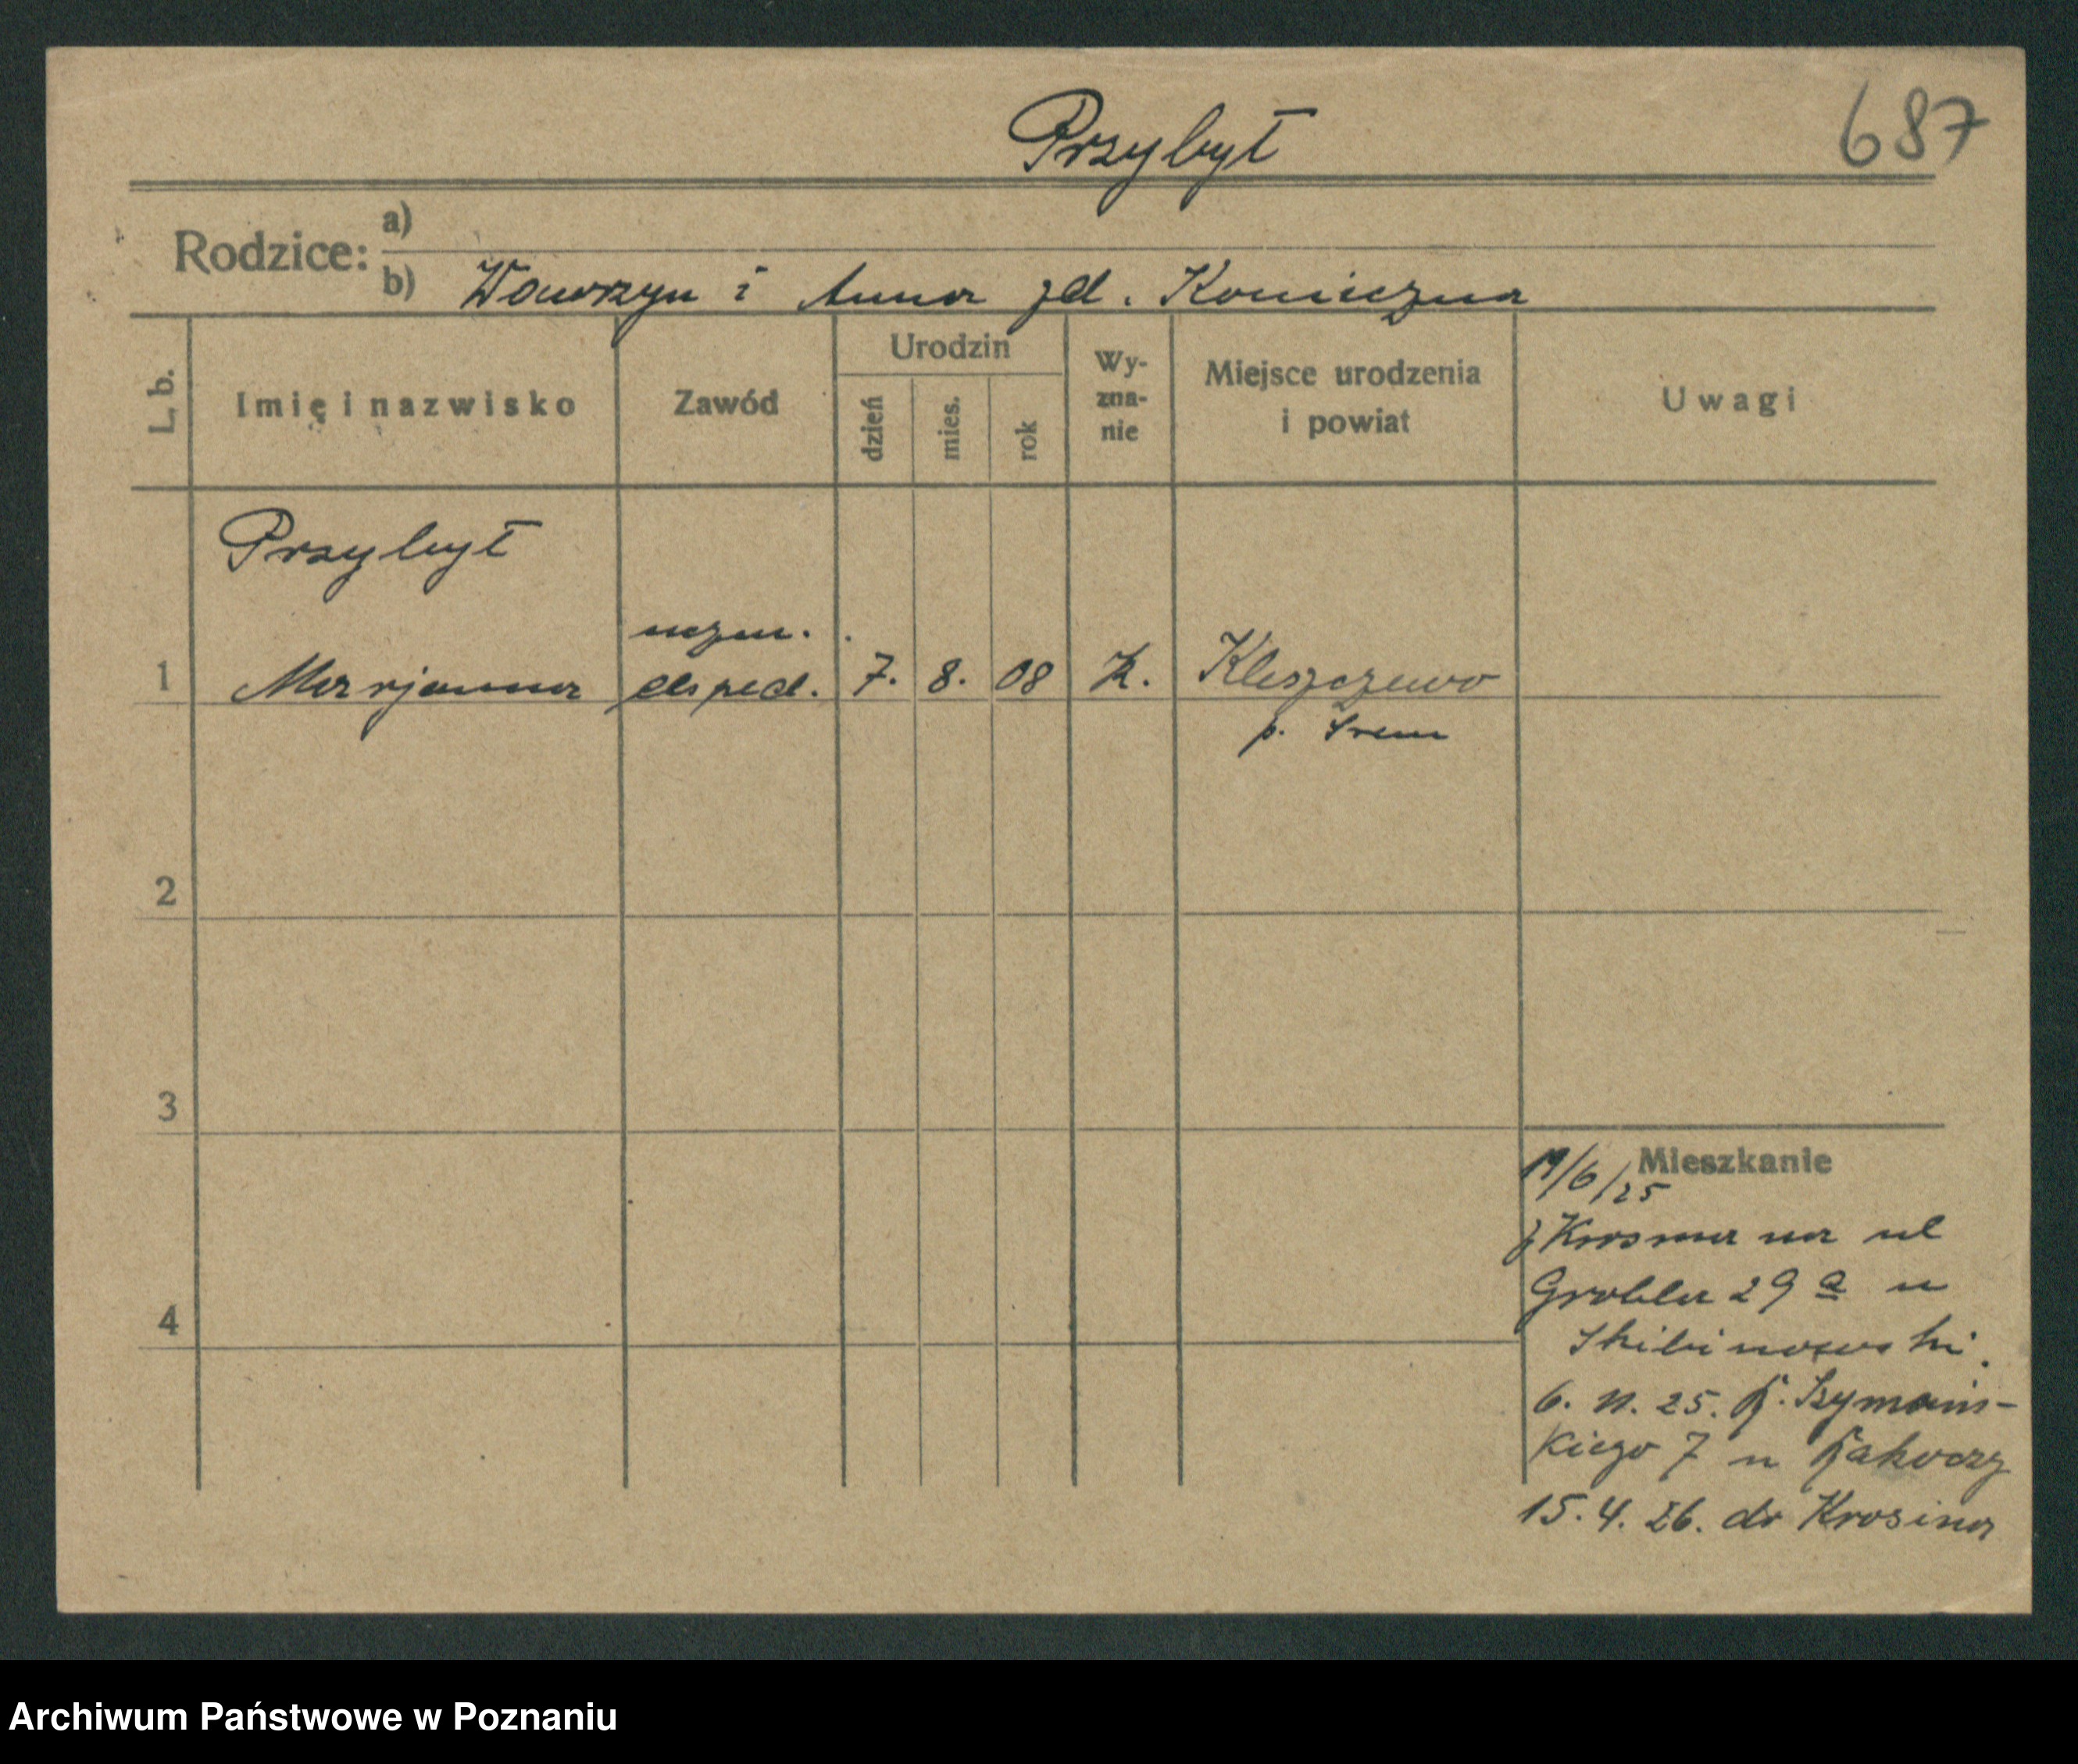 Przybył
687
Rodzice:
a)
b) Wawrzyn i Anna zd. Konieczna
L. b.
Imię i nazwisko
Zawód
Urodzin
dzień
mies.
rok
Wy-
zna-
nie
Miejsce urodzenia
i powiat
Uwagi
Przybył
uczen.
1 Marjanna eksped. 7. 8. 08 K. Kleszczewo
p. Śrem
2
3
4
Mieszkanie
/6/25
z Krosna na ul
Grobla 29 a u
Skibinowski.
6. 11. 25. Szymańs-
kiego 7 u
15. 4. 26. do Krosina
Archiwum Państwowe w Poznaniu